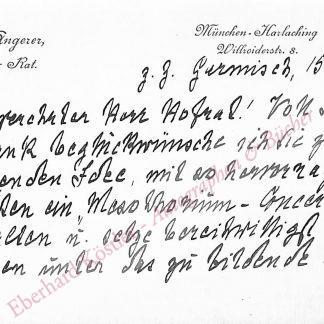 Angerer,
Rat.
München-Harlaching
Willroiderstr. 8.
z. Z. Garmisch, 15
verehrter Herr Hofrat! Voll
beglückwünsche ich Sie zu
enden Idee, mit so hervorra
ein „Mesothorium-Concer
ellen u. setze bereitwilligst
en unter das zu bildende
Eberhard Köstler - Autographen & Bücher